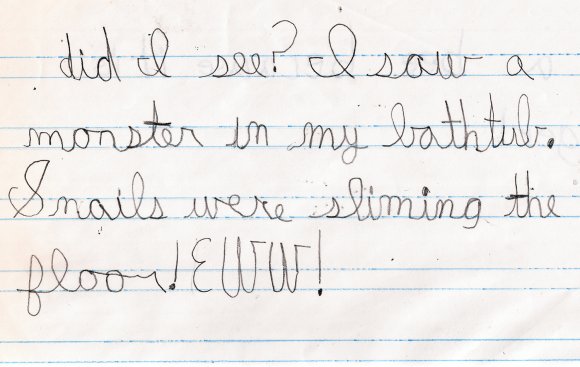 did I see? I saw a
monster in my bathtub.
Snails were sliming the
floor! EWW!